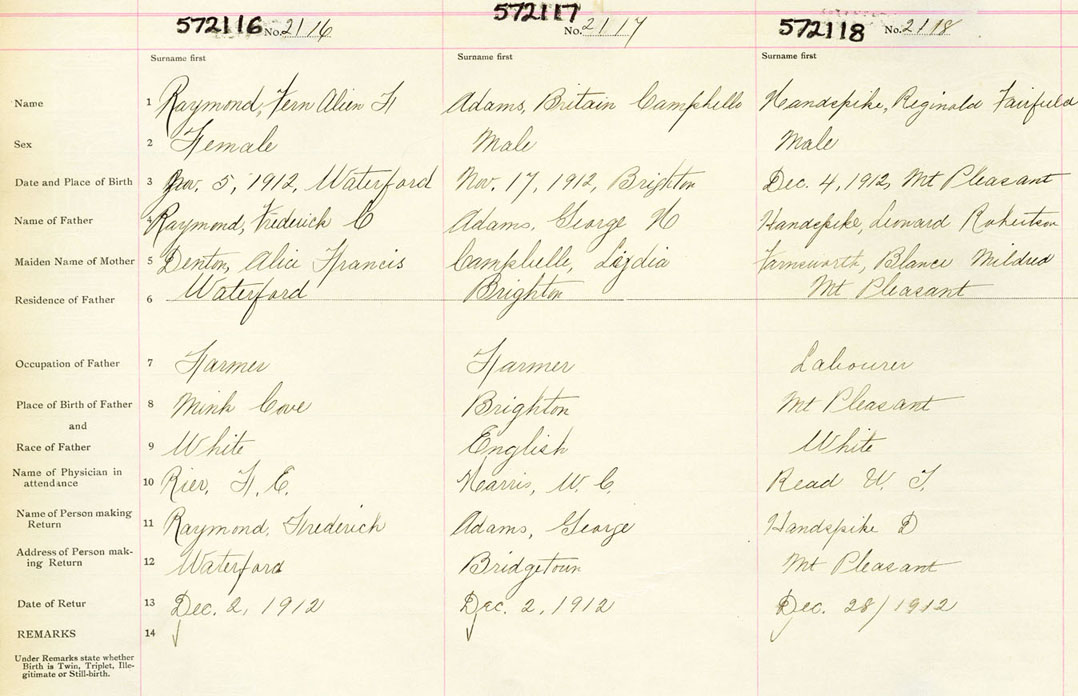 572116 No. 2116 572117 No. 2117 572118 No. 2118
Surname first Surname first Surname first
Name 1 Raymond, Vern Alien F Adams, Britain Campbelle Handspike, Reginald Fairfield
Sex 2 Female Male Male
Date and Place of Birth 3 Nov. 5, 1912, Waterford Nov. 17, 1912, Brighton Dec. 4, 1912, Mt Pleasant
Name of Father 4 Raymond, Frederick C Adams, George H Handspike, Leonard Robertson
Maiden Name of Mother 5 Denton, Alice Francis Campbelle, Lydia Farnsworth, Blance Mildred
Residence of Father 6 Waterford Brighton Mt Pleasant
Occupation of Father 7 Farmer Farmer Labourer
Place of Birth of Father 8 Mink Cove Brighton Mt Pleasant
and
Race of Father 9 White English White
Name of Physician in
attendance 10 Rier, F. E. Harris, W. C. Read W. F.
Name of Person making
Return 11 Raymond, Frederick Adams, George Handspike D
Address of Person mak-
ing Return 12 Waterford Bridgetown Mt Pleasant
Date of Retur 13 Dec. 2, 1912 Dec. 2, 1912 Dec. 28/1912
REMARKS 14
Under Remarks state whether
Birth is Twin, Triplet, Ille-
gitimate or Still-birth.